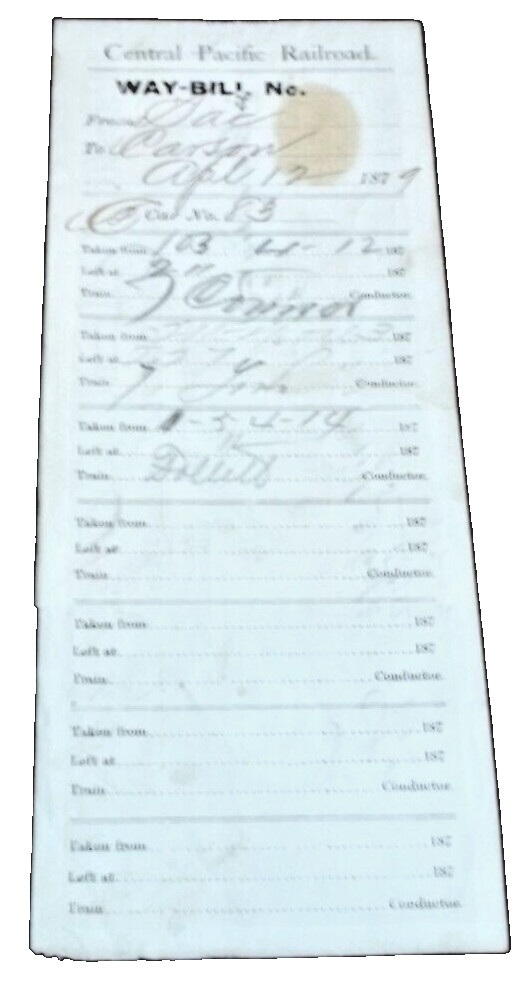 Central Pacific Railroad.
WAY-BILL, No.
From Sac
To Carson
Apl 12 1879
Car No. 83
Taken from 103 4-12 187
Left at " 187
Train O'Connor Conductor.
Taken from 187
Left at 187
Train 7 Conductor.
Taken from 1-5 4-14 187
Left at " 187
Train Follett Conductor.
Taken from 187
Left at 187
Train Conductor.
Taken from 187
Left at 187
Train Conductor.
Taken from 187
Left at 187
Train Conductor.
Taken from 187
Left at 187
Train Conductor.